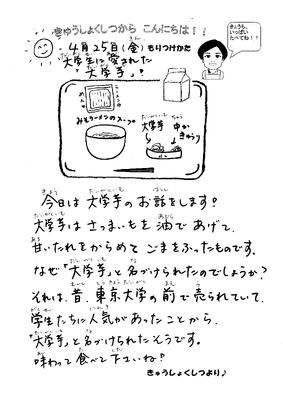 きゅうしょくしつから こんにちは！！
4月25日(金) もりつけかた
大学生に愛された
「大学芋」？
きょうも、
いっぱい
たべてね！！
みそラーメンのスープ
大学芋
中か
きゅうり
今日は大学芋のお話をします？
大学芋はさつまいもを油であげて、
甘いたれをからめてごまをふったものです。
なぜ「大学芋」と名づけられたのでしょうか？
それは、昔、東京大学の前で売られていて、
学生たちに人気があったことから、
「大学芋」と名づけられたそうです。
味わって食べて下さいね？
きゅうしょくしつより♪